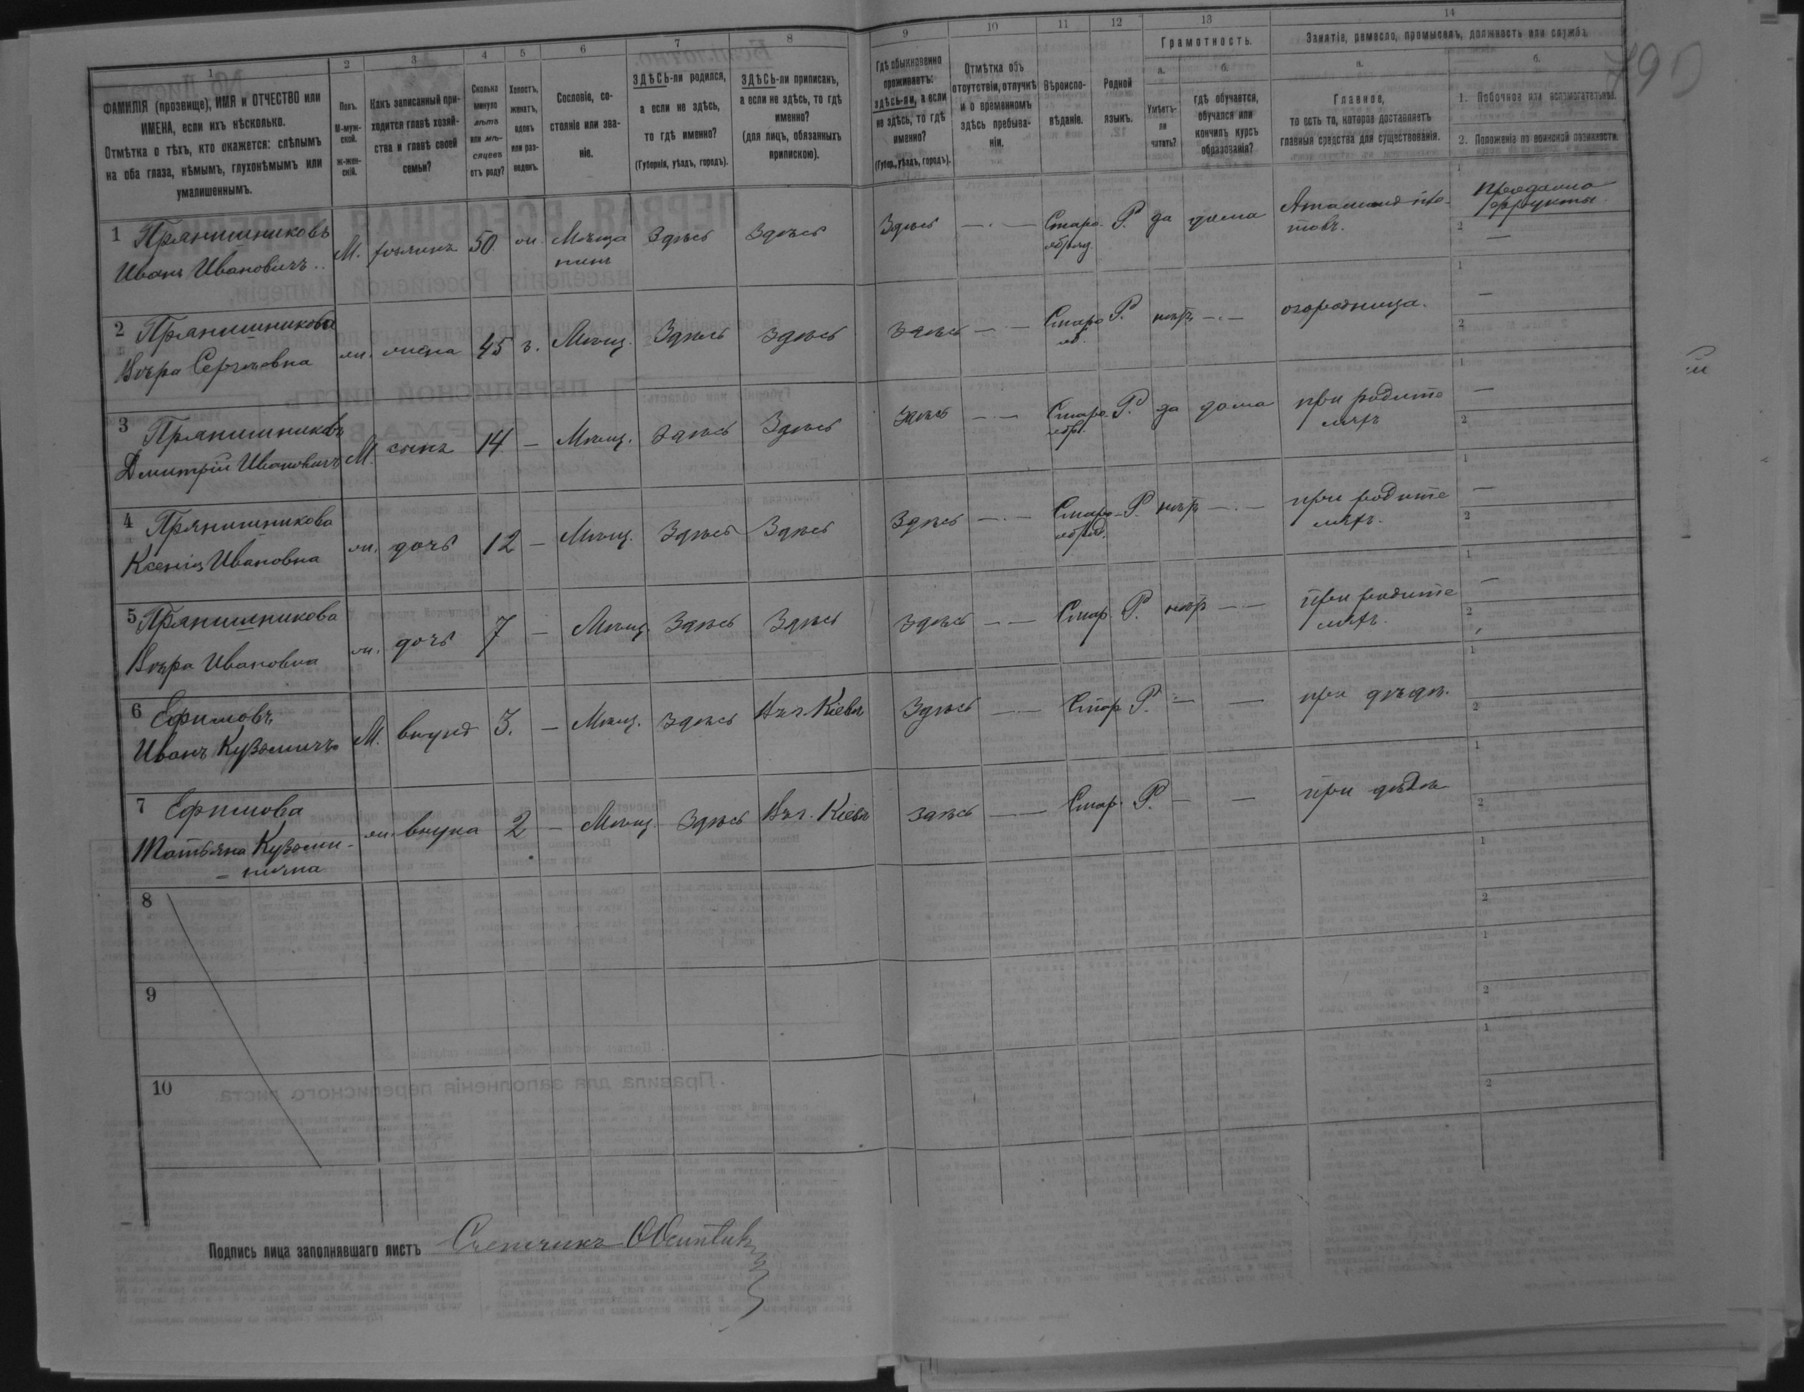 1 2 3 4 5 6 7 8 9 10 11 12 13 14
ФАМИЛІЯ (прозвище), ИМЯ и ОТЧЕСТВО или
ИМЕНА, если ихъ нѣсколько.
Отмѣтка о тѣхъ, кто окажется: слѣпымъ
на оба глаза, нѣмымъ, глухонѣмымъ или
умалишеннымъ.
Полъ.
М-муж-
ской.
Ж-жен-
скій.
Какъ записанный при-
ходится главѣ хозяй-
ства и главѣ своей
семьи?
Сколько
минуло
лѣтъ
или мѣ-
сяцевъ
отъ роду?
Холостъ,
женатъ,
вдовъ
или раз-
веденъ.
Сословіе, со-
стояніе или зва-
ніе.
ЗДѢСЬ-ли родился,
а если не здѣсь,
то гдѣ именно?
(Губернія, уѣздъ, городъ).
ЗДѢСЬ-ли приписанъ,
а если не здѣсь, то гдѣ
именно?
(для лицъ, обязанныхъ
припискою).
Гдѣ обыкновенно
проживаетъ:
здѣсь-ли, а если
не здѣсь, то гдѣ
именно?
(Губер., уѣздъ, городъ).
Отмѣтка объ
отсутствіи, отлучкѣ
и о временномъ
здѣсь пребыва-
ніи.
Вѣроиспо-
вѣданіе.
Родной
языкъ.
Грамотность.
а.
Умѣетъ-
ли
читать?
б.
гдѣ обучается,
обучался или
кончилъ курсъ
образованія?
Занятіе, ремесло, промыселъ, должность или служба.
а.
Главное,
то есть то, которое доставляетъ
главныя средства для существованія.
б.
1. Побочное или вспомогательное.
2. Положеніе по воинской повинности.
1 Прянишниковъ
Иванъ Ивановичъ М. хозяинъ 50 Мѣща
нинъ Здѣсь Здѣсь Здѣсь — Старо
обряд. Р. да дома
2
2 Прянишникова
Вѣра Сергѣевна жена 45 з. Мѣщ. Здѣсь Здѣсь Здѣсь — — Старо
об. Р. нѣтъ — огородница. —
3 Прянишниковъ
Дмитрій Ивановичъ М. сынъ 14 — Мѣщ. Здѣсь Здѣсь Здѣсь — — Старо
обр. Р. да дома при родите
ляхъ —
4 Прянишникова
Ксенія Ивановна ж. дочь 12 — Мѣщ. Здѣсь Здѣсь Здѣсь — Старо
обряд. Р. нѣтъ — при родите
ляхъ. —
5 Прянишникова
Вѣра Ивановна ж. дочь 7 — Мѣщ. Здѣсь Здѣсь Здѣсь — — Стар. Р. нѣтъ — при родите
ляхъ. —
6 Ефимовъ
Иванъ Кузьмичъ М. внукъ 3. — Мѣщ. Здѣсь Въ г. Кіевѣ Здѣсь — Стар. Р. — — при дѣдѣ.
7 Ефимова
Татьяна Кузьми-
нична ж. внука 2 — Мѣщ. Здѣсь Въ г. Кіевѣ Здѣсь — Стар. Р. — — при дѣдѣ
8
9
10
Подпись лица заполнявшаго листъ Счетчикъ